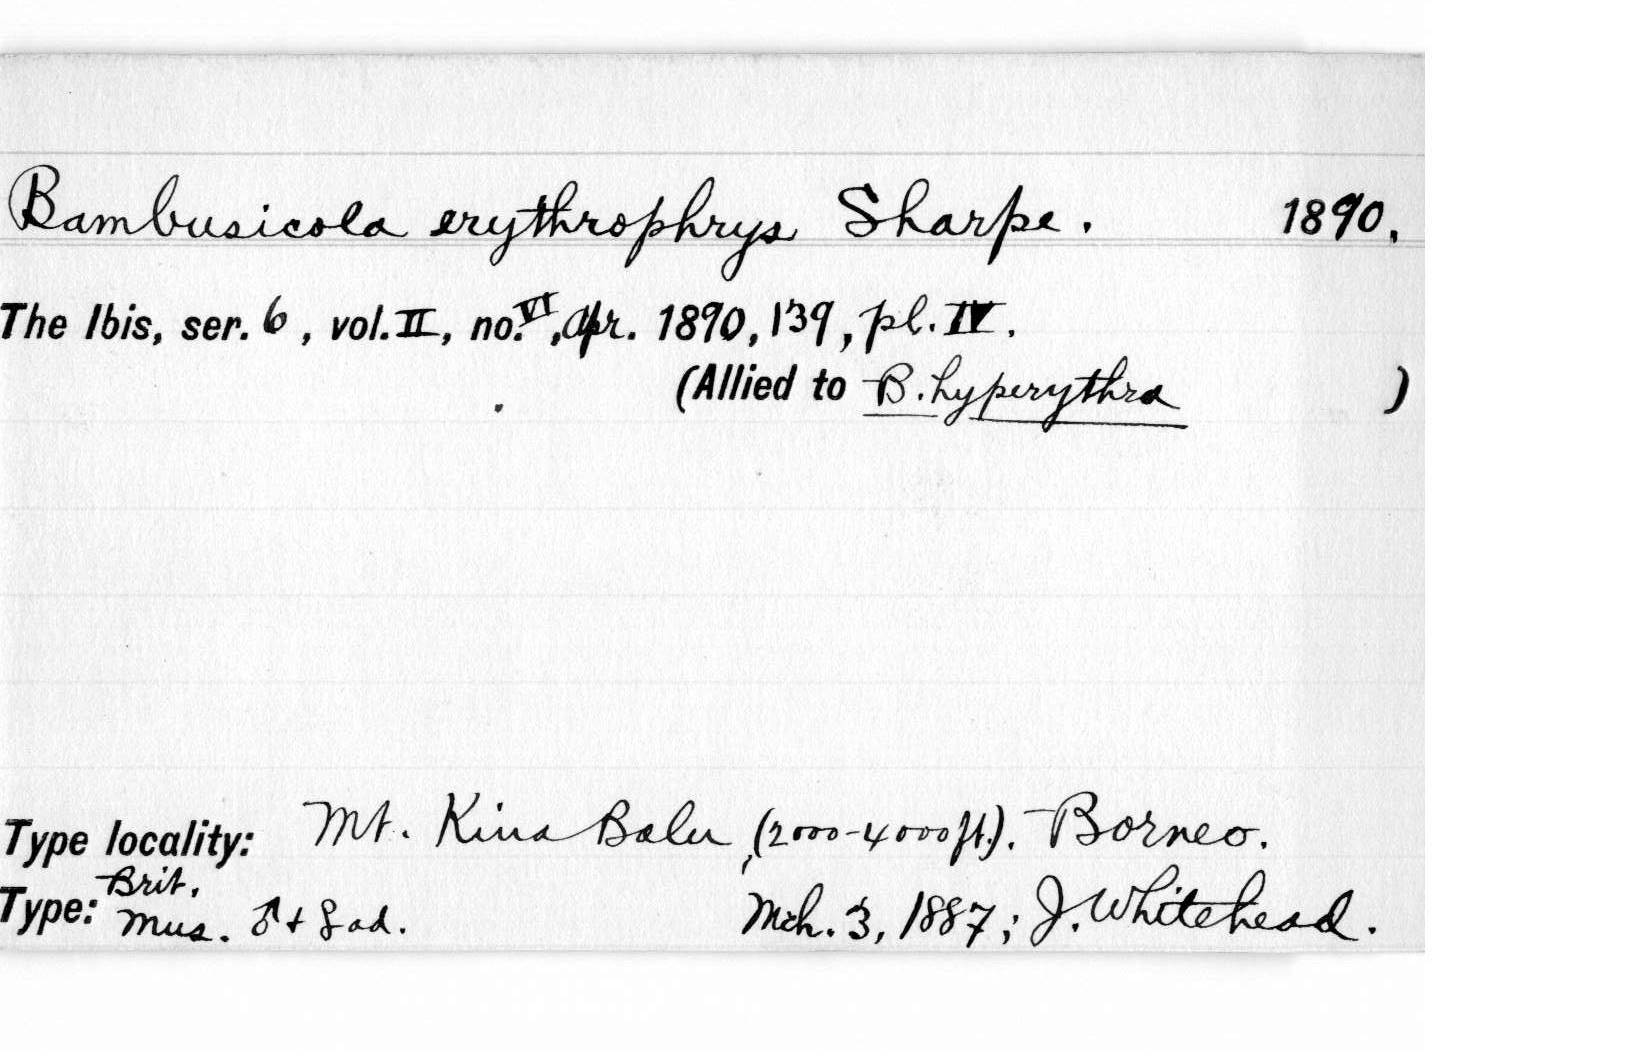 Bambusicola erythrophrys Sharpe. 1890.
The Ibis, ser. 6, vol. II, no. VI, Apr. 1890, 139, pl. IV.
(Allied to B. hyperythra )
Type locality: Mt. Kina Balu, (2000-4000 ft.). Borneo.
Type: Brit. Mus. ♂ + ♀ ad. Mch. 3, 1887; J. Whitehead.